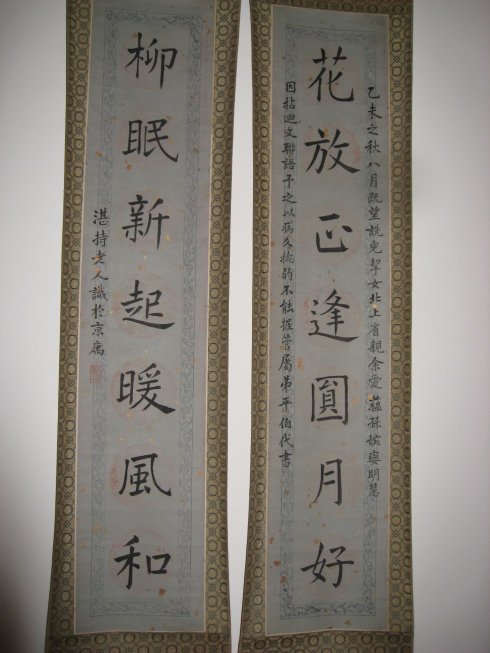 乙未之秋八月既望詵兒挈女北上省親余愛孫婉嫕明慧
花放正逢圓月好
因拈迴文聯語予之以病久腕弱不能握管屬弟平伯代書
柳眠新起暖風和
湛持老人識於京寓